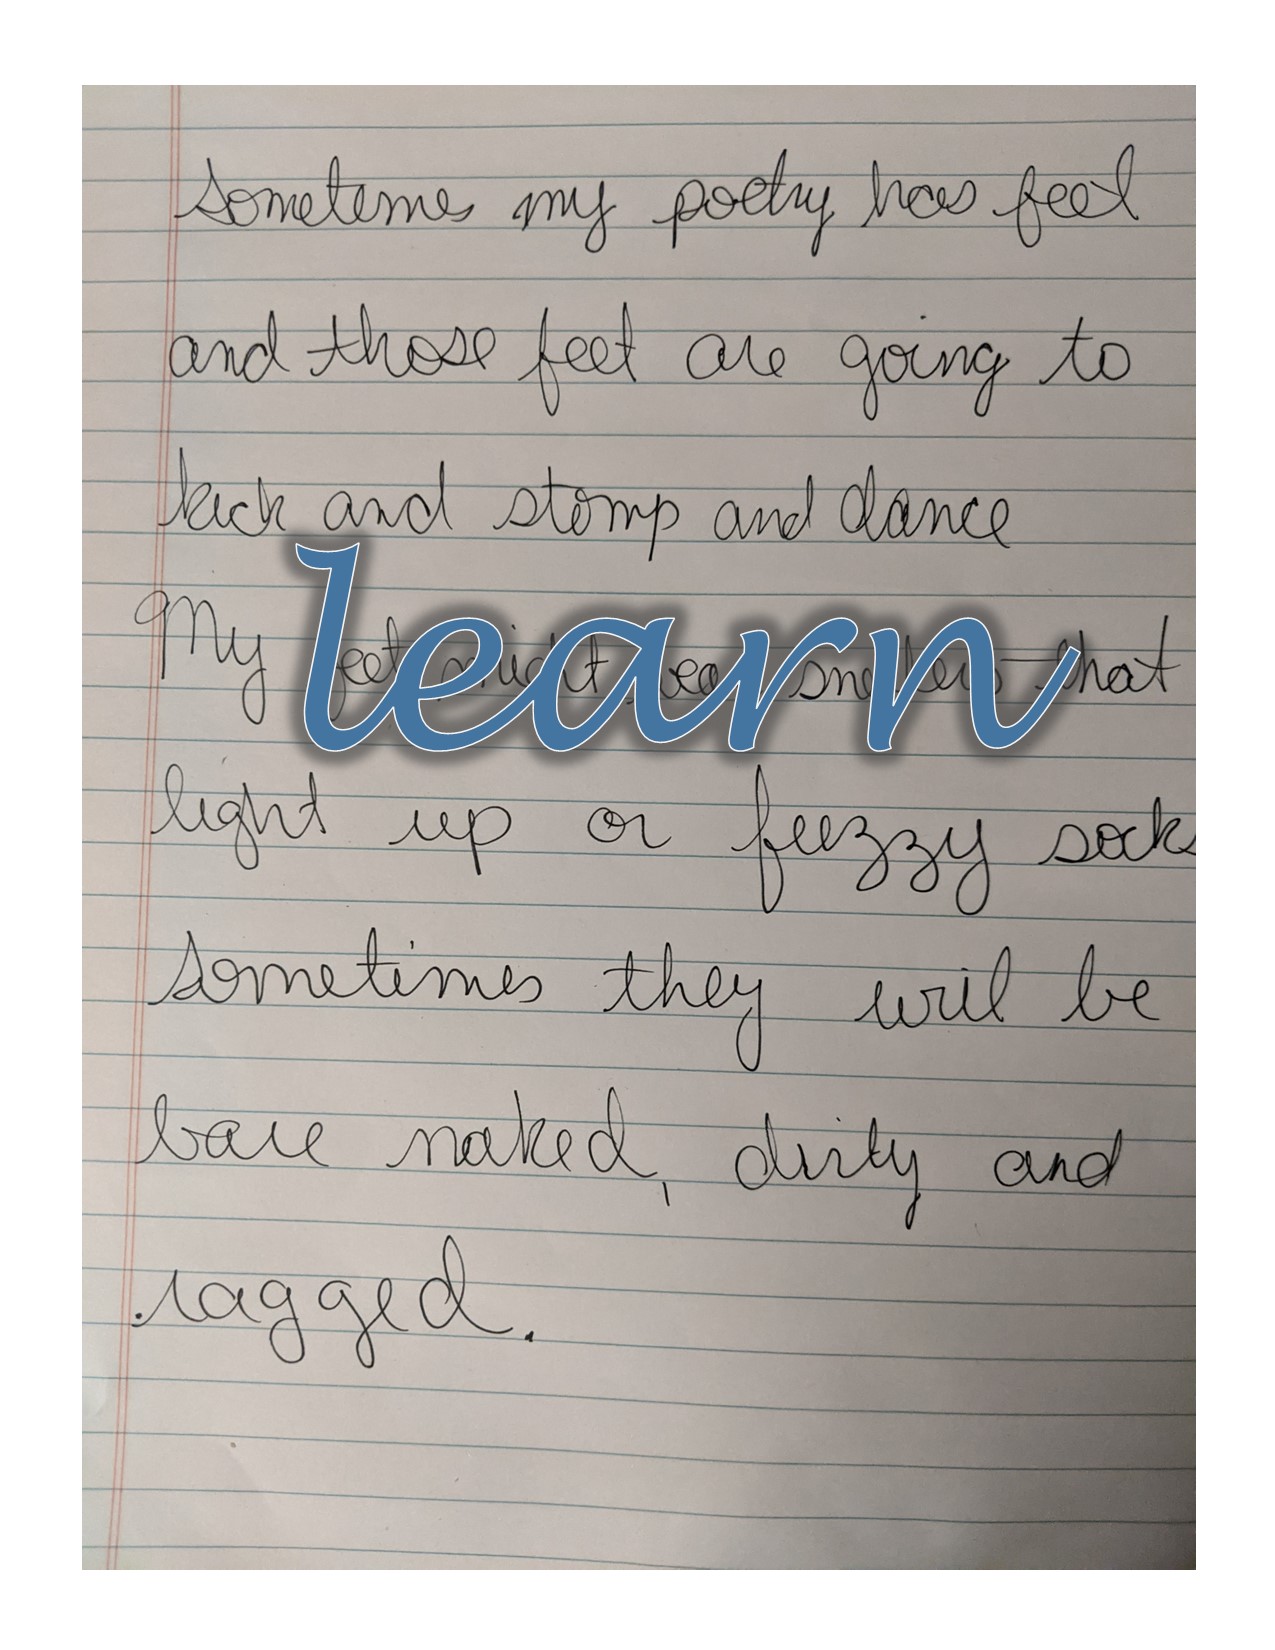 Sometimes my poetry has feet
and those feet are going to
kick and stomp and dance
learn
My feet might wear sneakers that
light up or fuzzy socks
sometimes they will be
bare naked, dirty and
ragged.